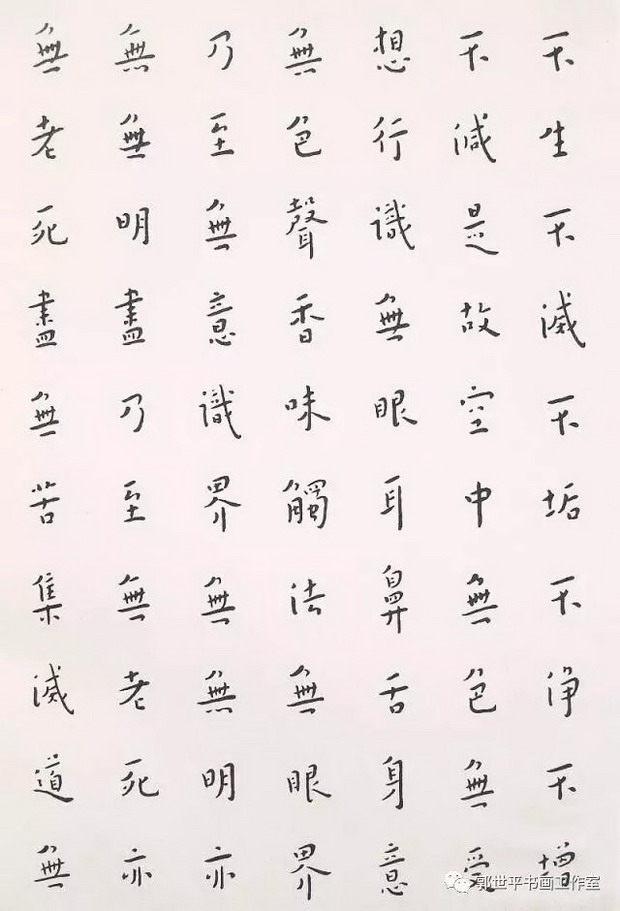 不生不滅不垢不淨不增
不減是故空中無色無受
想行識無眼耳鼻舌身意
無色聲香味觸法無眼界
乃至無意識界無無明亦
無無明盡乃至無老死亦
無老死盡無苦集滅道無
郭世平书画工作室